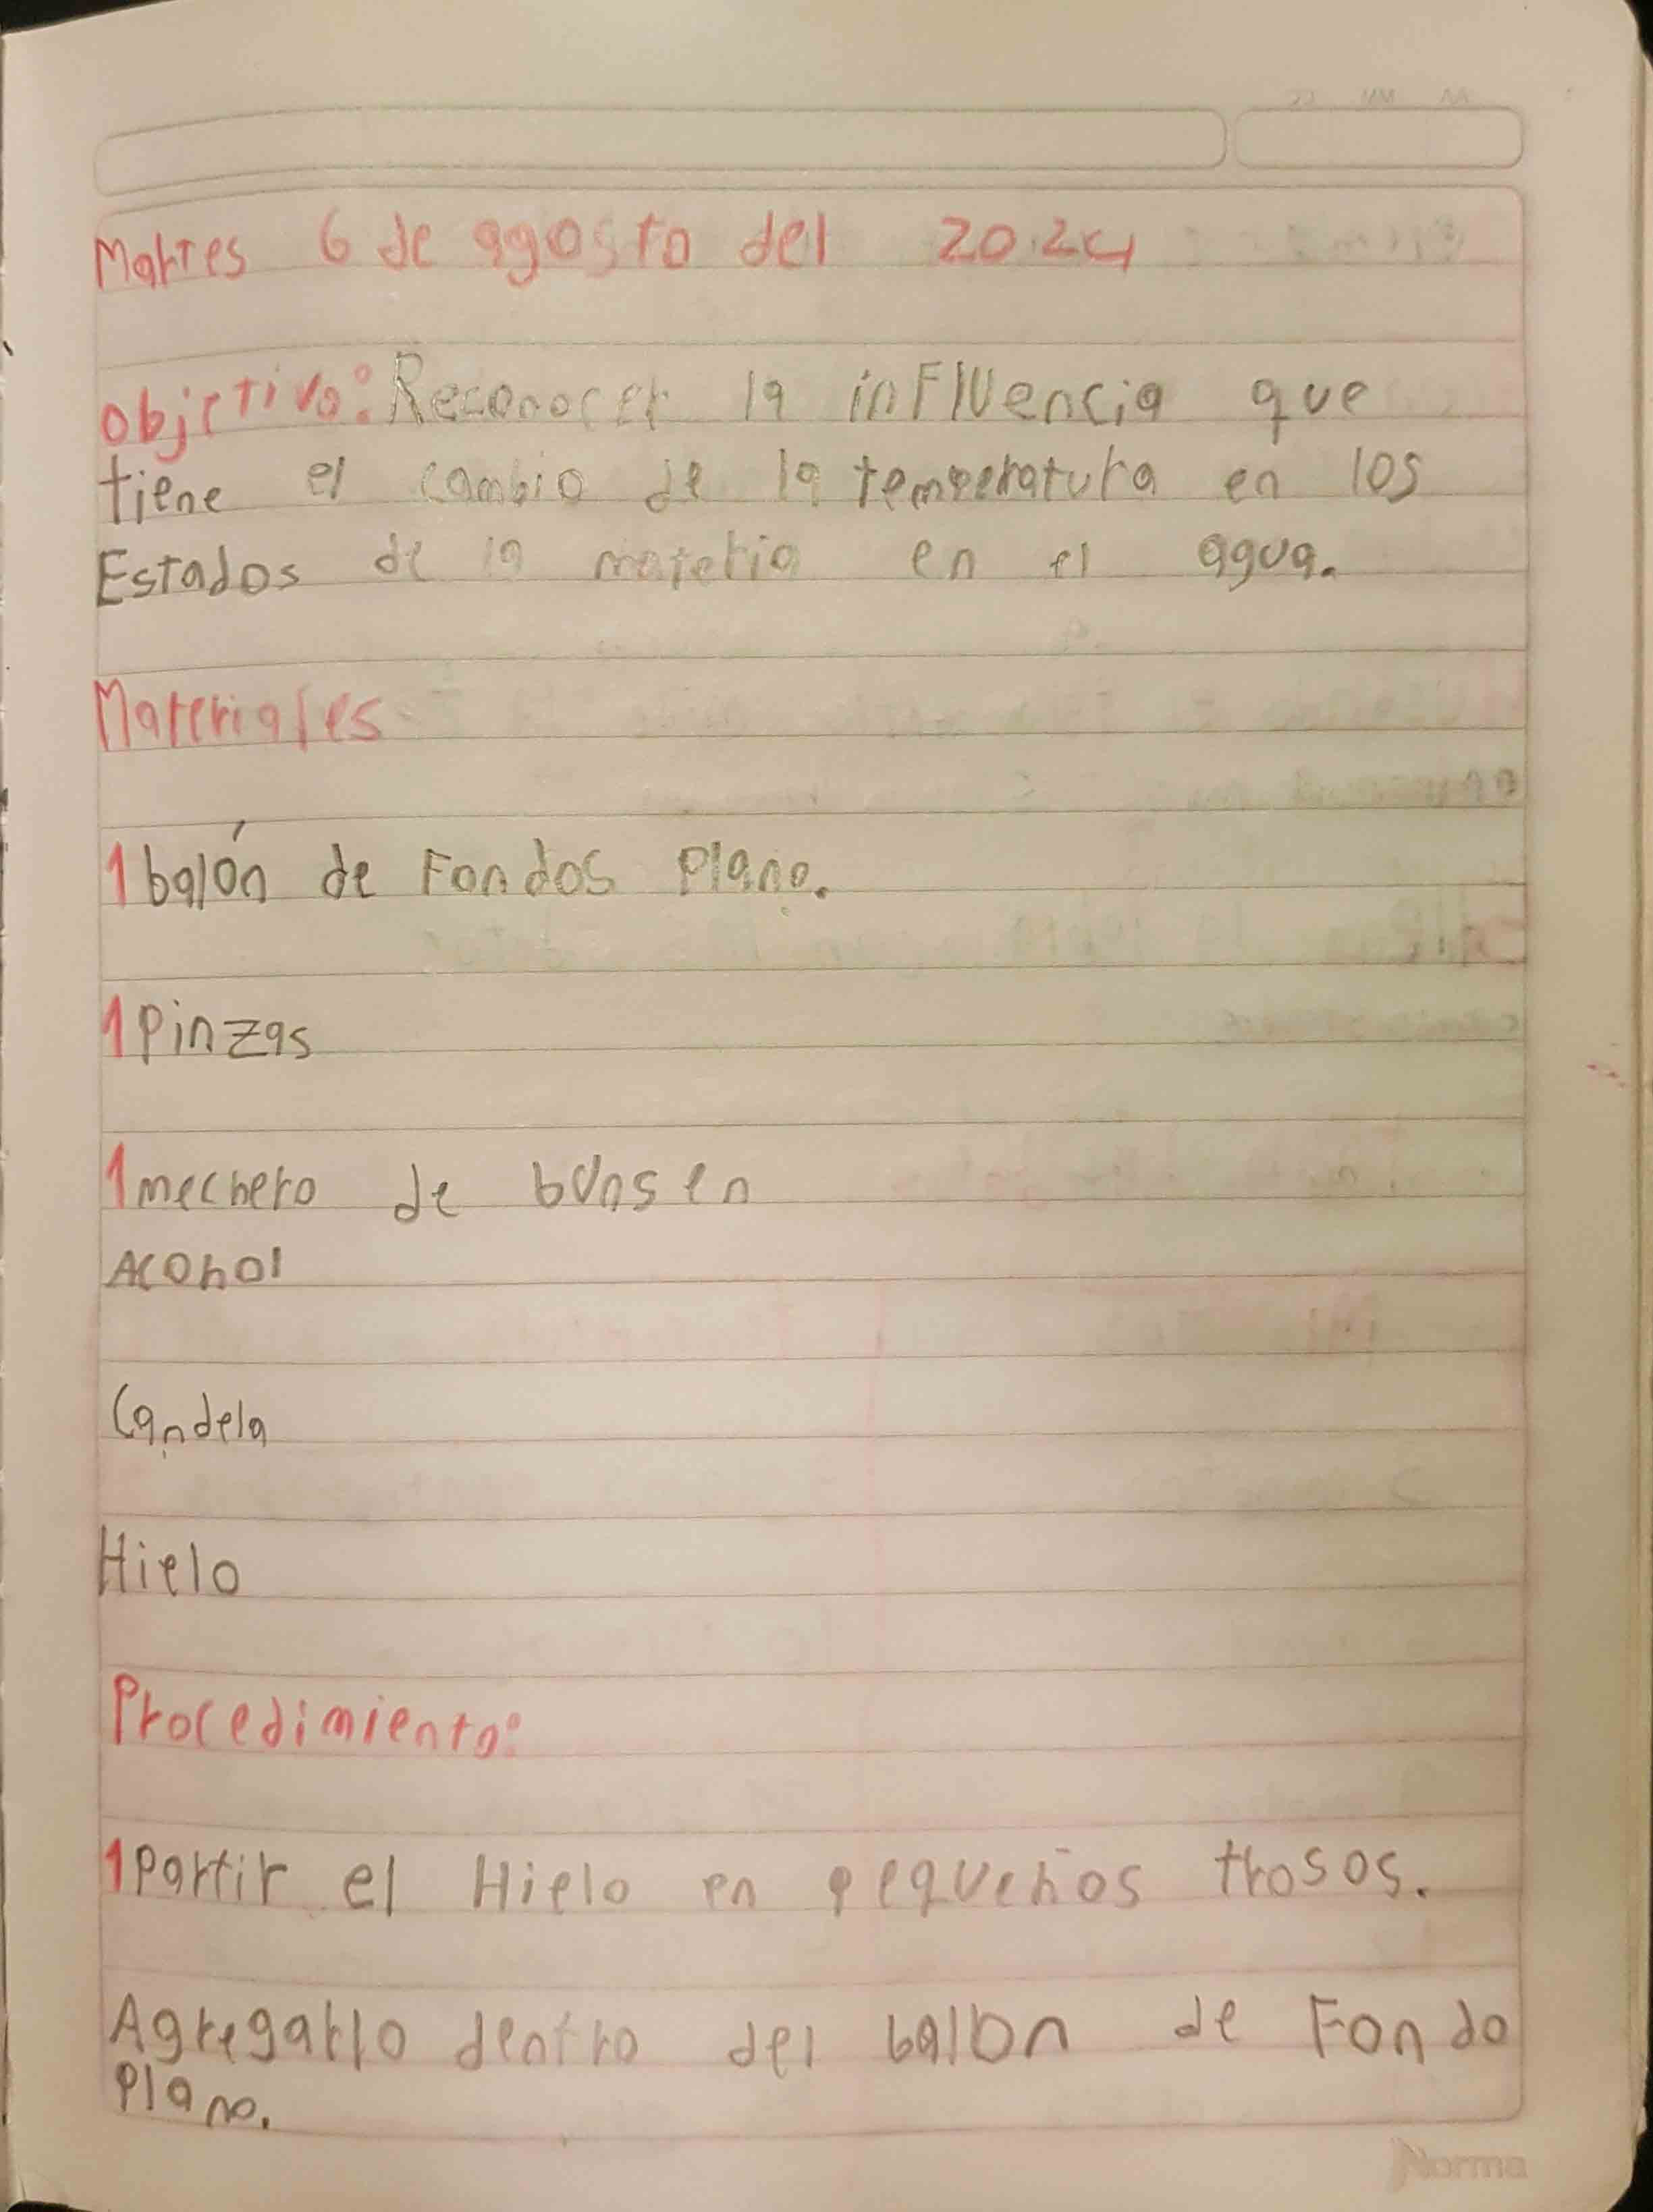 Martes 6 de agosto del 2024
objetivo: Reconocer la inFlUencia que
tiene el cambio de la temperatura en los
Estados de la materia en el agua.
Materiales
1 balón de Fondos Plano.
1 Pinzas
1 mechero de bUnsen
Acohol
Candela
Hielo
Procedimiento:
1 Partir el Hielo en pequeños trosos.
Agregarlo dentro del balon de Fondo
Plano.
Norma